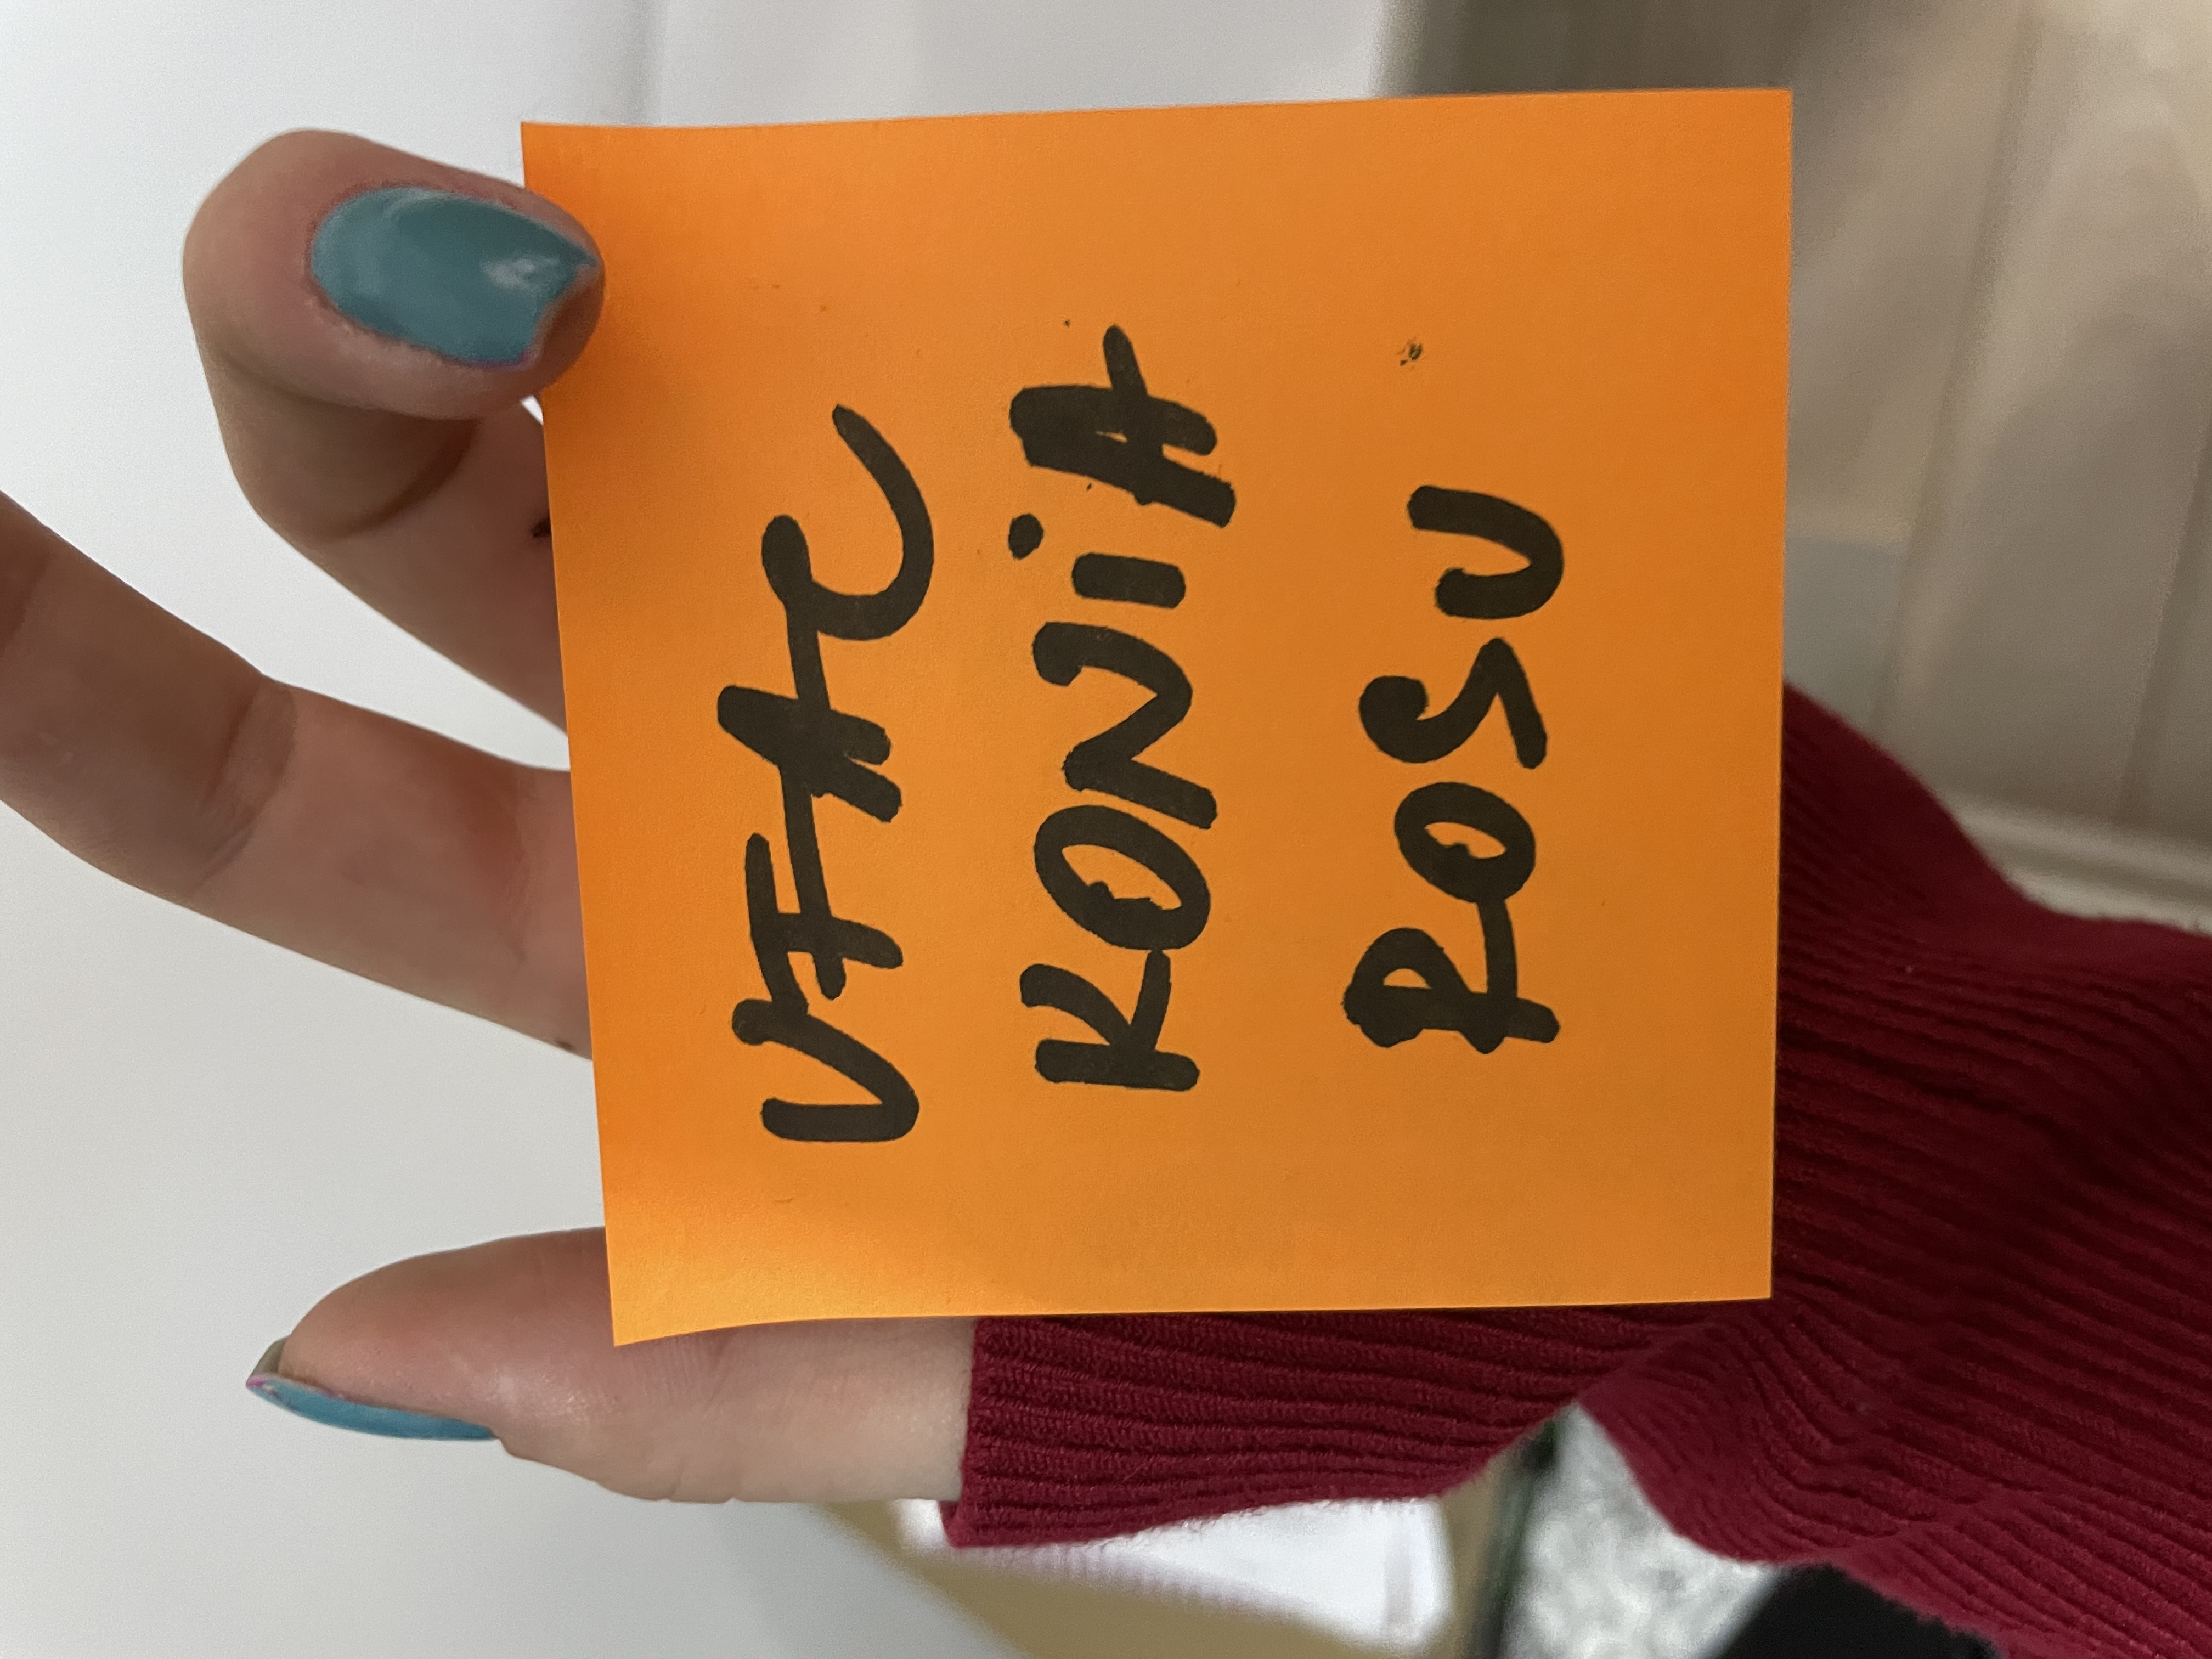 UFAC
KONiA
ROSU